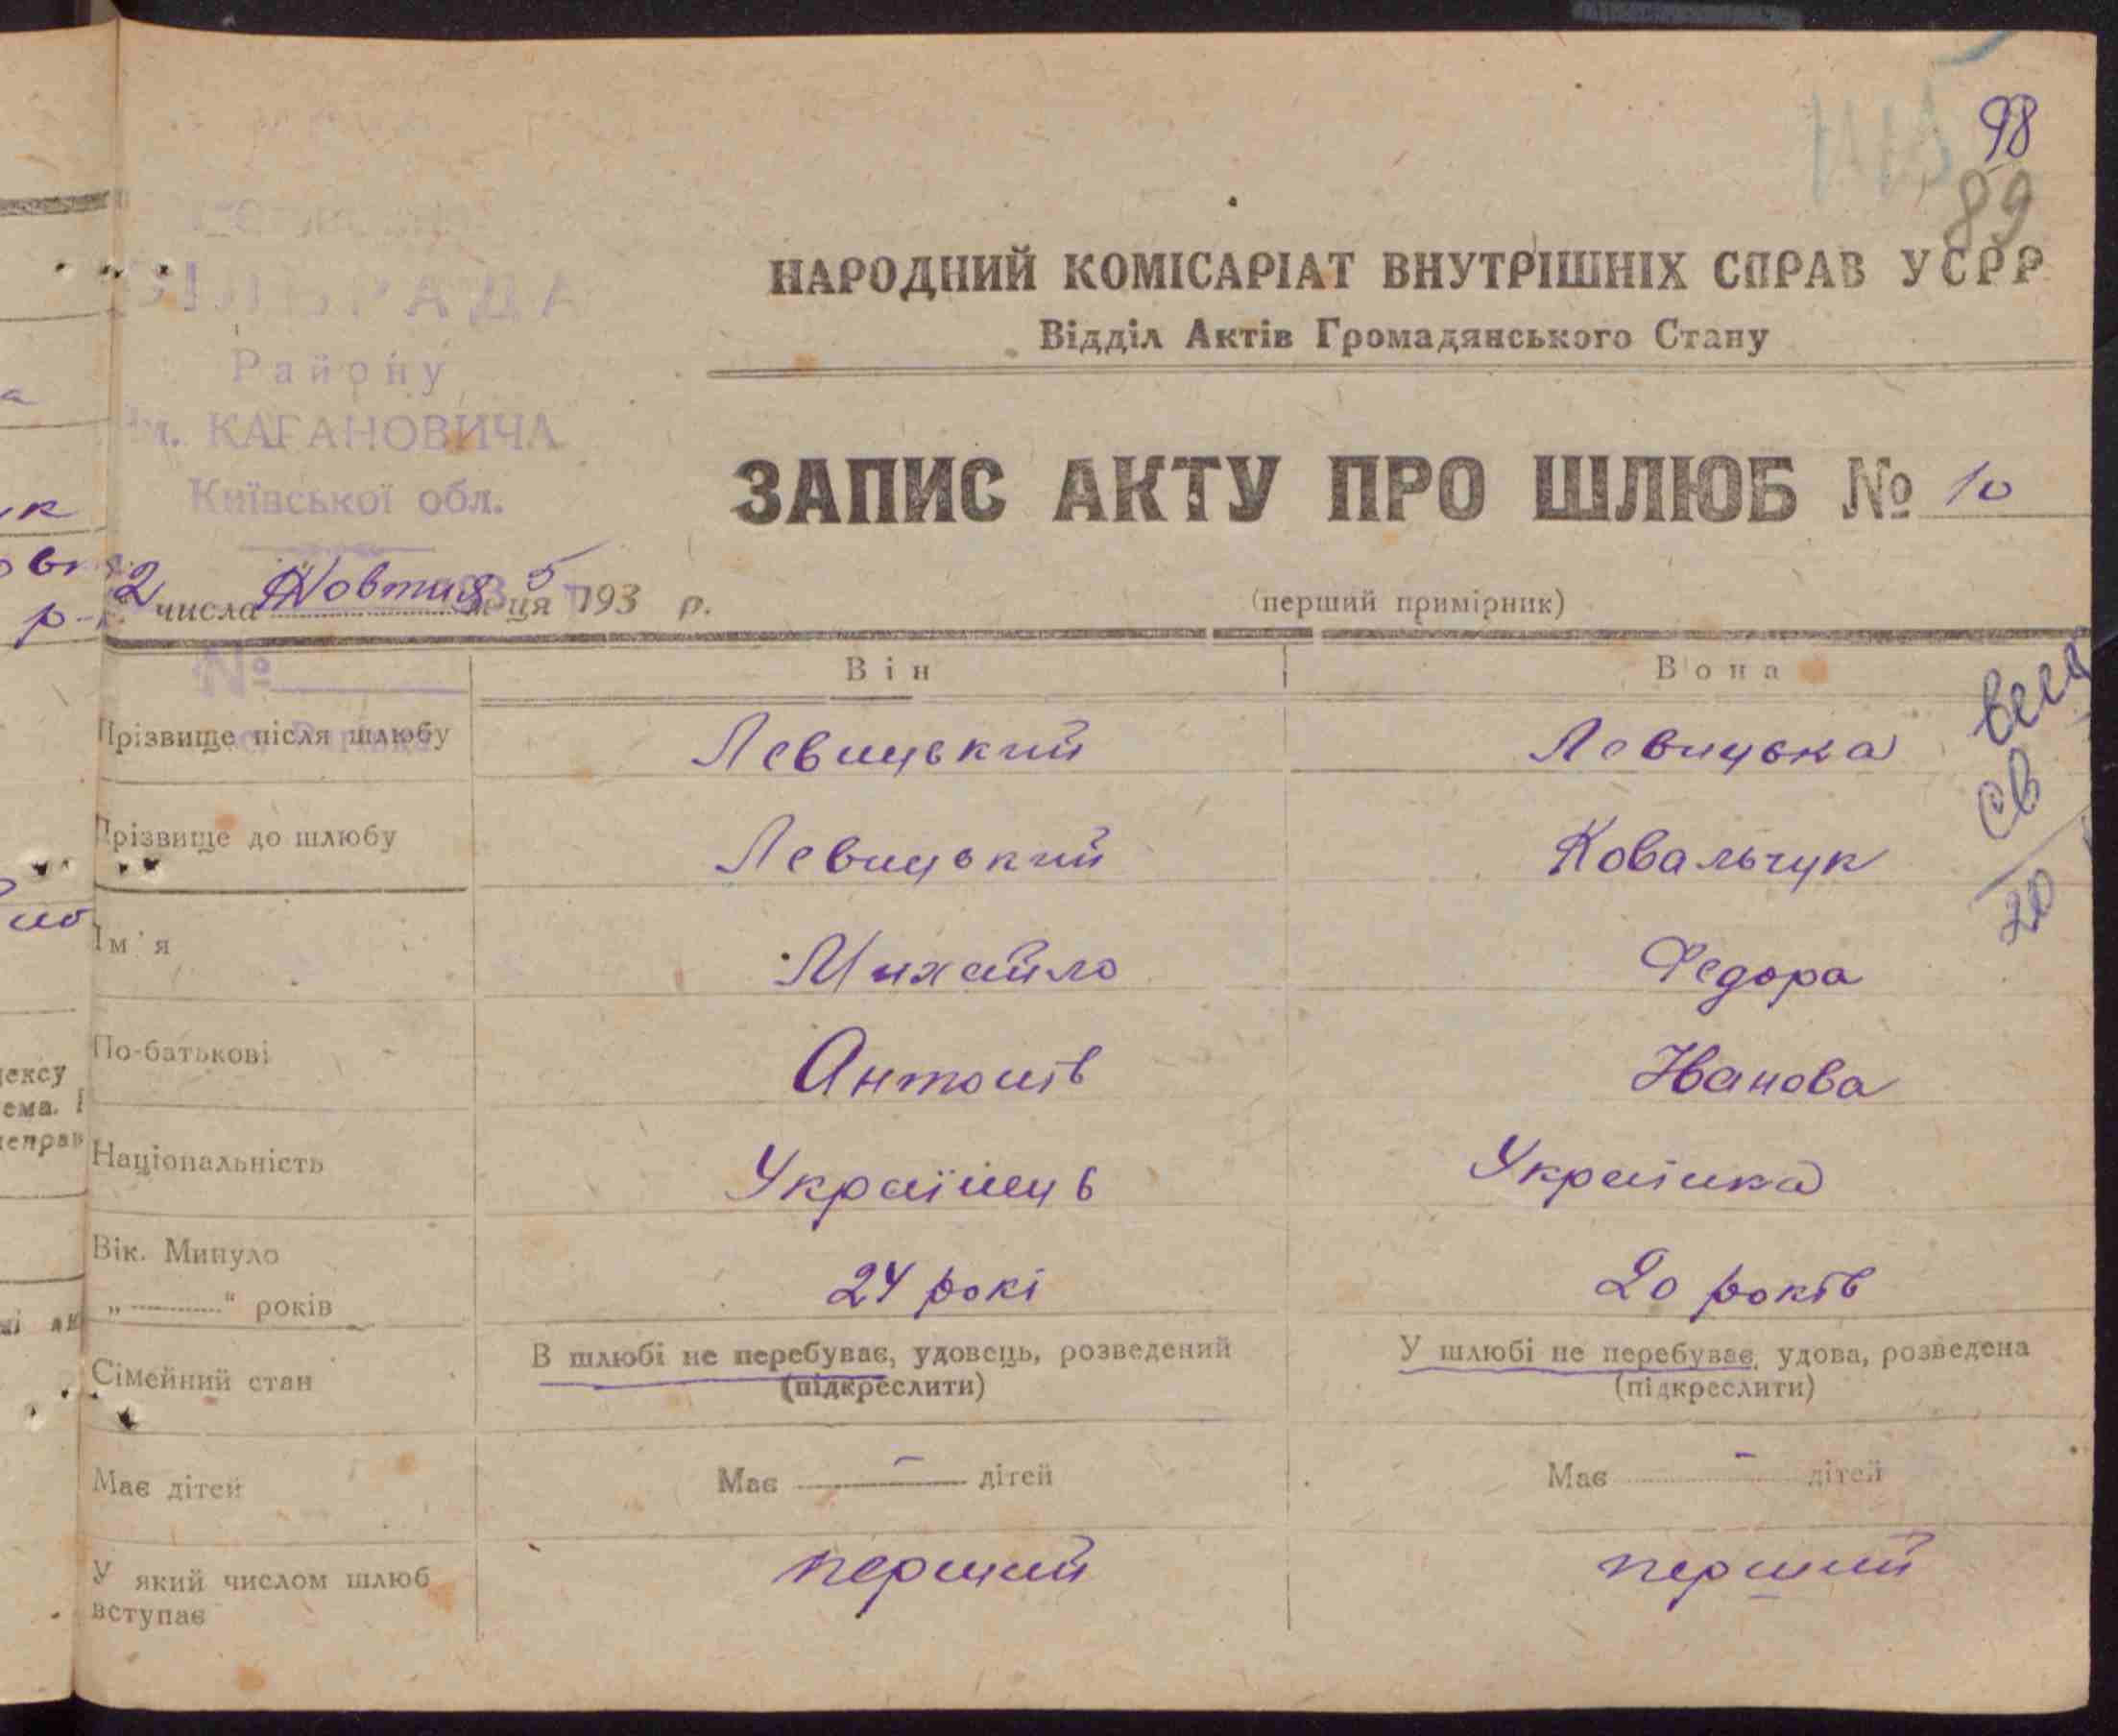 98
89
НАРОДНИЙ КОМІСАРІАТ ВНУТРІШНІХ СПРАВ УСРР
Відділ Актів Громадянського Стану
СІЛЬРАДА
Району
ім. КАГАНОВИЧА
Київської обл.
ЗАПИС АКТУ ПРО ШЛЮБ № 10
2 числа Жовтня м-ця 193 5 р.
(перший примірник)
№
Він Вона
Прізвище після шлюбу Левицький Левицька
Прізвище до шлюбу Левицький Ковальчук
Ім'я Михайло Федора
По-батькові Антонів Иванова
Національність Українець Українка
Вік. Минуло
„ “ років 24 рокі 20 років
Сімейний стан В шлюбі не перебуває, удовець, розведений У шлюбі не перебуває, удова, розведена
(підкреслити) (підкреслити)
Має дітей Має — дітей Має - дітей
У який числом шлюб вступає перший перший
св
20
ук
р-
дексу
ема.